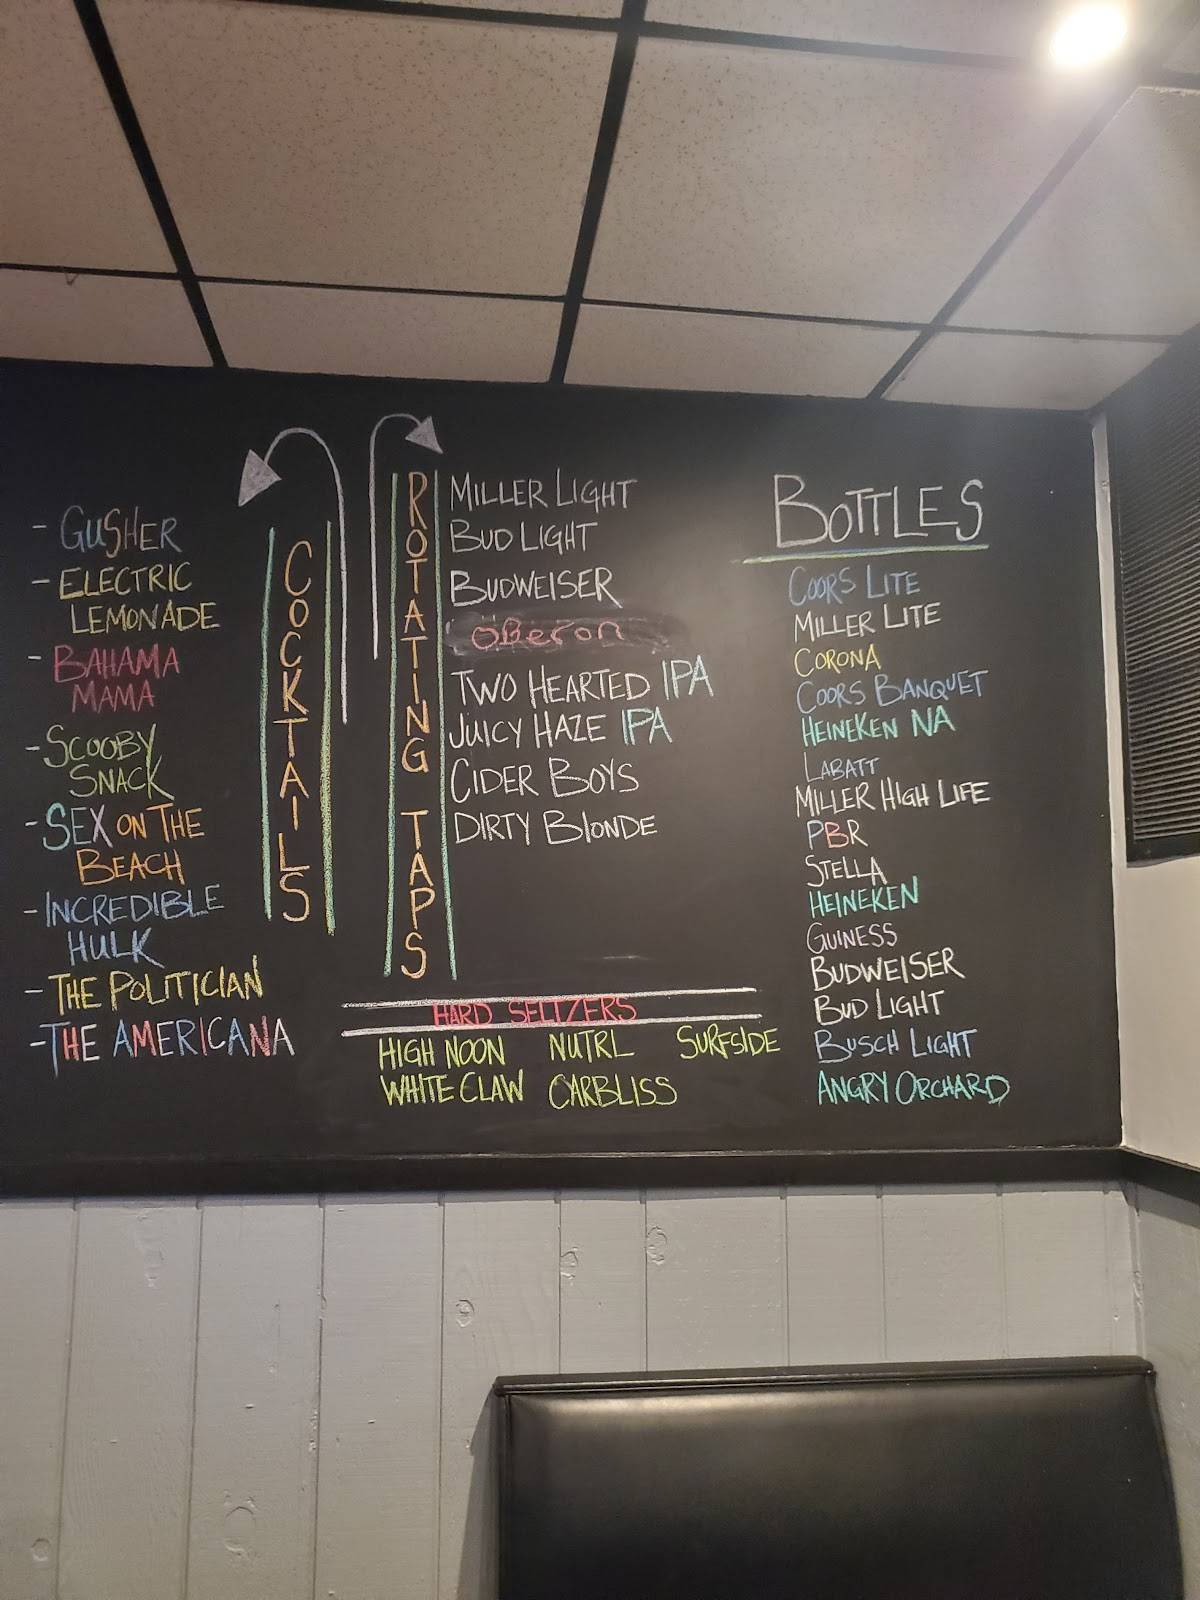 - GUSHER
- ELECTRIC
LEMONADE
- BAHAMA
MAMA
- SCOOBY
SNACK
- SEX ON THE
BEACH
- INCREDIBLE
HULK
- THE POLITICIAN
- THE AMERICANA
COCKTAILS
ROTATING TAPS
MILLER LIGHT
BUD LIGHT
BUDWEISER
OBeron
TWO HEARTED IPA
JUICY HAZE IPA
CIDER BOYS
DIRTY BlONDE
HARD SELTZERS
HIGH NOON NUTRL SURFSIDE
WHITE CLAW CARBLISS
BOTTLES
COORS LITE
MILLER LITE
CORONA
COORS BANQUET
HEINEKEN NA
LABATT
MILLER HIGH LIFE
PBR
STELLA
HEINEKEN
GUINESS
BUDWEISER
BUD LIGHT
BUSCH LIGHT
ANGRY ORCHARD